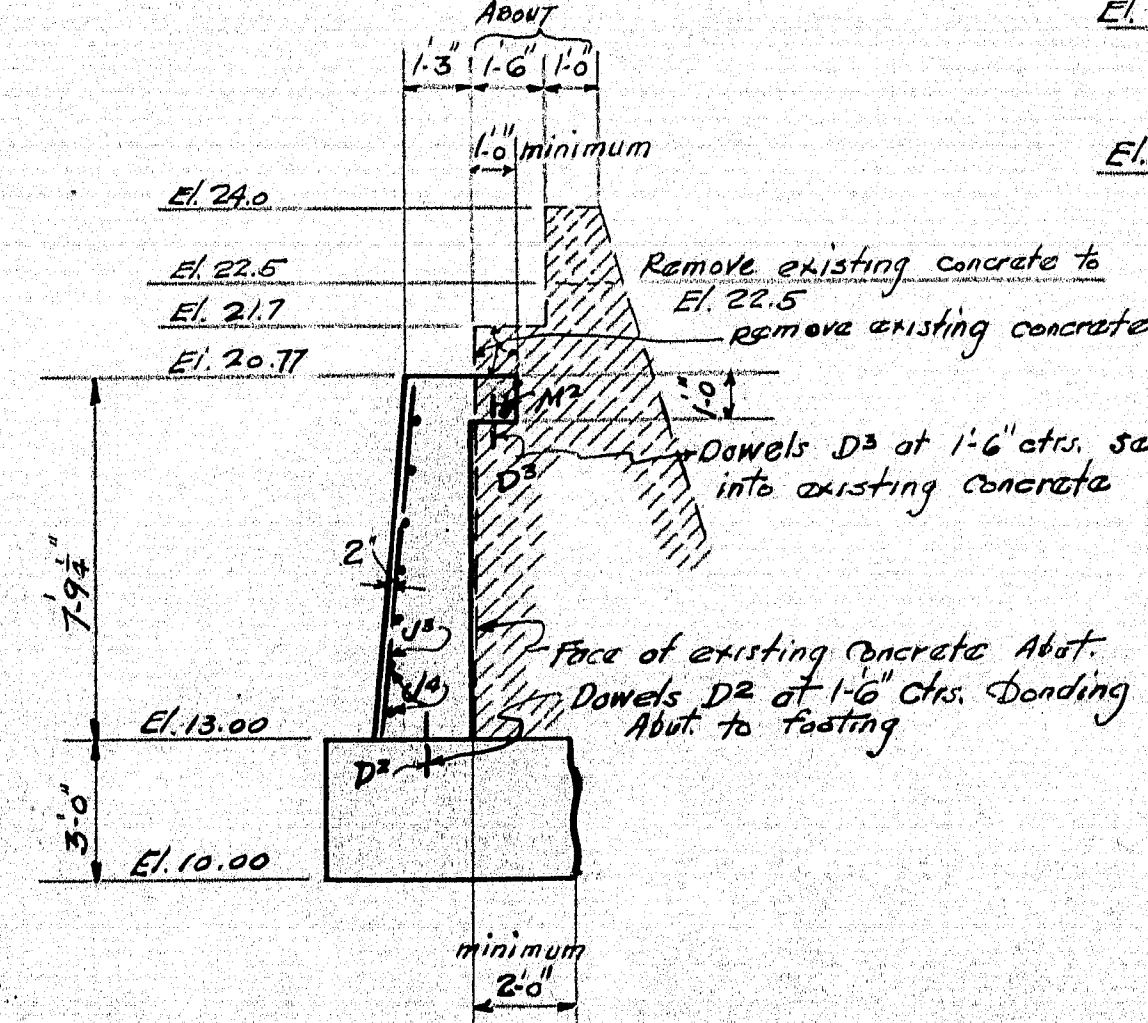 ABOUT
El.
1'-3" 1'-6" 1'-0"
1'-0" minimum
El.
El. 24.0
El. 22.5
Remove existing concrete to
El. 22.5
El. 21.7
Remove existing concrete
El. 20.77
M2
1'-0"
D3
Dowels D3 at 1'-6" ctrs. se
into existing concrete
2"
7'-9 1/4"
J3
J4
Face of existing concrete Abut.
Dowels D2 at 1'-6" Ctrs. bonding
Abut. to footing
El. 13.00
D2
3'-0"
El. 10.00
minimum
2'-0"